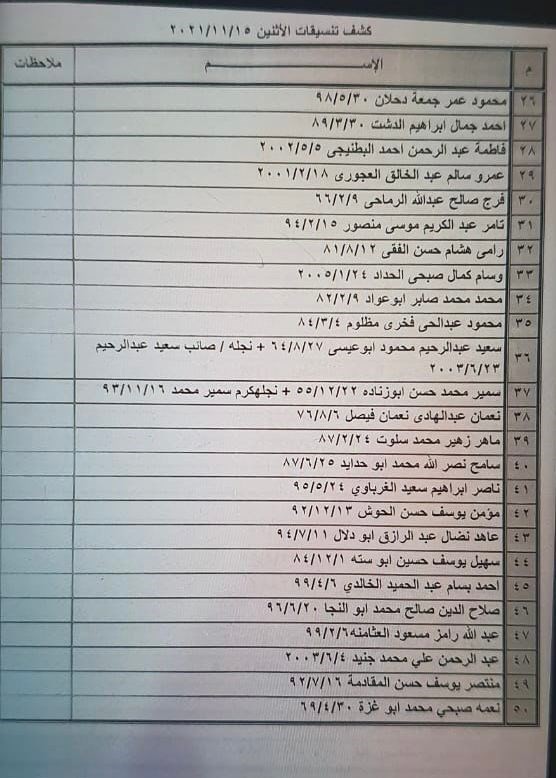 كشف تنسيقات الأثنين ٢٠٢١/١١/١٥
م الإســـــــم ملاحظات
٢٦ محمود عمر جمعة دحلان ٩٨/٥/٣٠
٢٧ احمد جمال ابراهيم الدشت ٨٩/٣/٣٠
٢٨ فاطمة عبد الرحمن احمد البطنيجى ٢٠٠٢/٥/٥
٢٩ عمرو سالم عبد الخالق العجورى ٢٠٠١/٢/١٨
٣٠ فرج صالح عبدالله الرماحى ٦٦/٢/٩
٣١ تامر عبد الكريم موسى منصور ٩٤/٢/١٥
٣٢ رامى هشام حسن الفقى ٨١/٨/١٢
٣٣ وسام كمال صبحى الحداد ٢٠٠٥/١/٢٤
٣٤ محمد محمد صابر ابوعواد ٨٢/٢/٩
٣٥ محمود عبدالحى فخرى مظلوم ٨٤/٣/٤
٣٦ سعيد عبدالرحيم محمود ابوعيسى ٦٤/٨/٢٧ + نجله / صائب سعيد عبدالرحيم
٢٠٠٣/٦/٢٣
٣٧ سمير محمد حسن ابوزناده ٥٥/١٢/٢٢ + نجلهكرم سمير محمد ٩٣/١١/١٦
٣٨ نعمان عبدالهادى نعمان فيصل ٧٦/٨/٦
٣٩ ماهر زهير محمد سلوت ٨٧/٢/٢٤
٤٠ سامح نصر الله محمد ابو حدايد ٨٧/٦/٢٥
٤١ ناصر ابراهيم سعيد الغرباوي ٩٥/٥/٢٤
٤٢ مؤمن يوسف حسن الحوش ٩٢/١٢/١٣
٤٣ عاهد نضال عبد الرازق ابو دلال ٩٤/٧/١١
٤٤ سهيل يوسف حسين ابو سته ٨٤/١٢/١
٤٥ احمد بسام عبد الحميد الخالدي ٩٩/٤/٦
٤٦ صلاح الدين صالح محمد ابو النجا ٩٦/٦/٢٠
٤٧ عبد الله رامز مسعود العثامنه٩٩/٢/٦
٤٨ عبد الرحمن علي محمد جنيد ٢٠٠٣/٦/٤
٤٩ منتصر يوسف حسن المقادمة ٩٢/٧/١٦
٥٠ نعمه صبحي محمد ابو غزة ٦٩/٤/٣٠